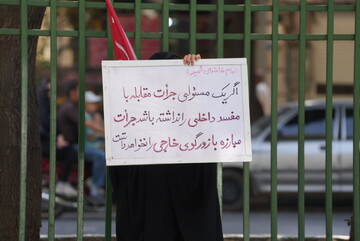 اگر یک مسئولی جرأت مقابله با
مفسد داخلی را نداشته باشد جرأت
مبارزه با زورگوی خارجی را نخواهد داشت